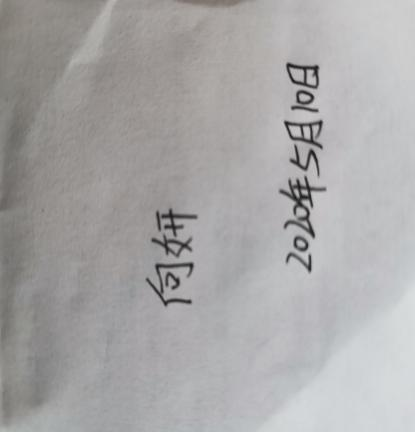 向妍
2020年5月10日